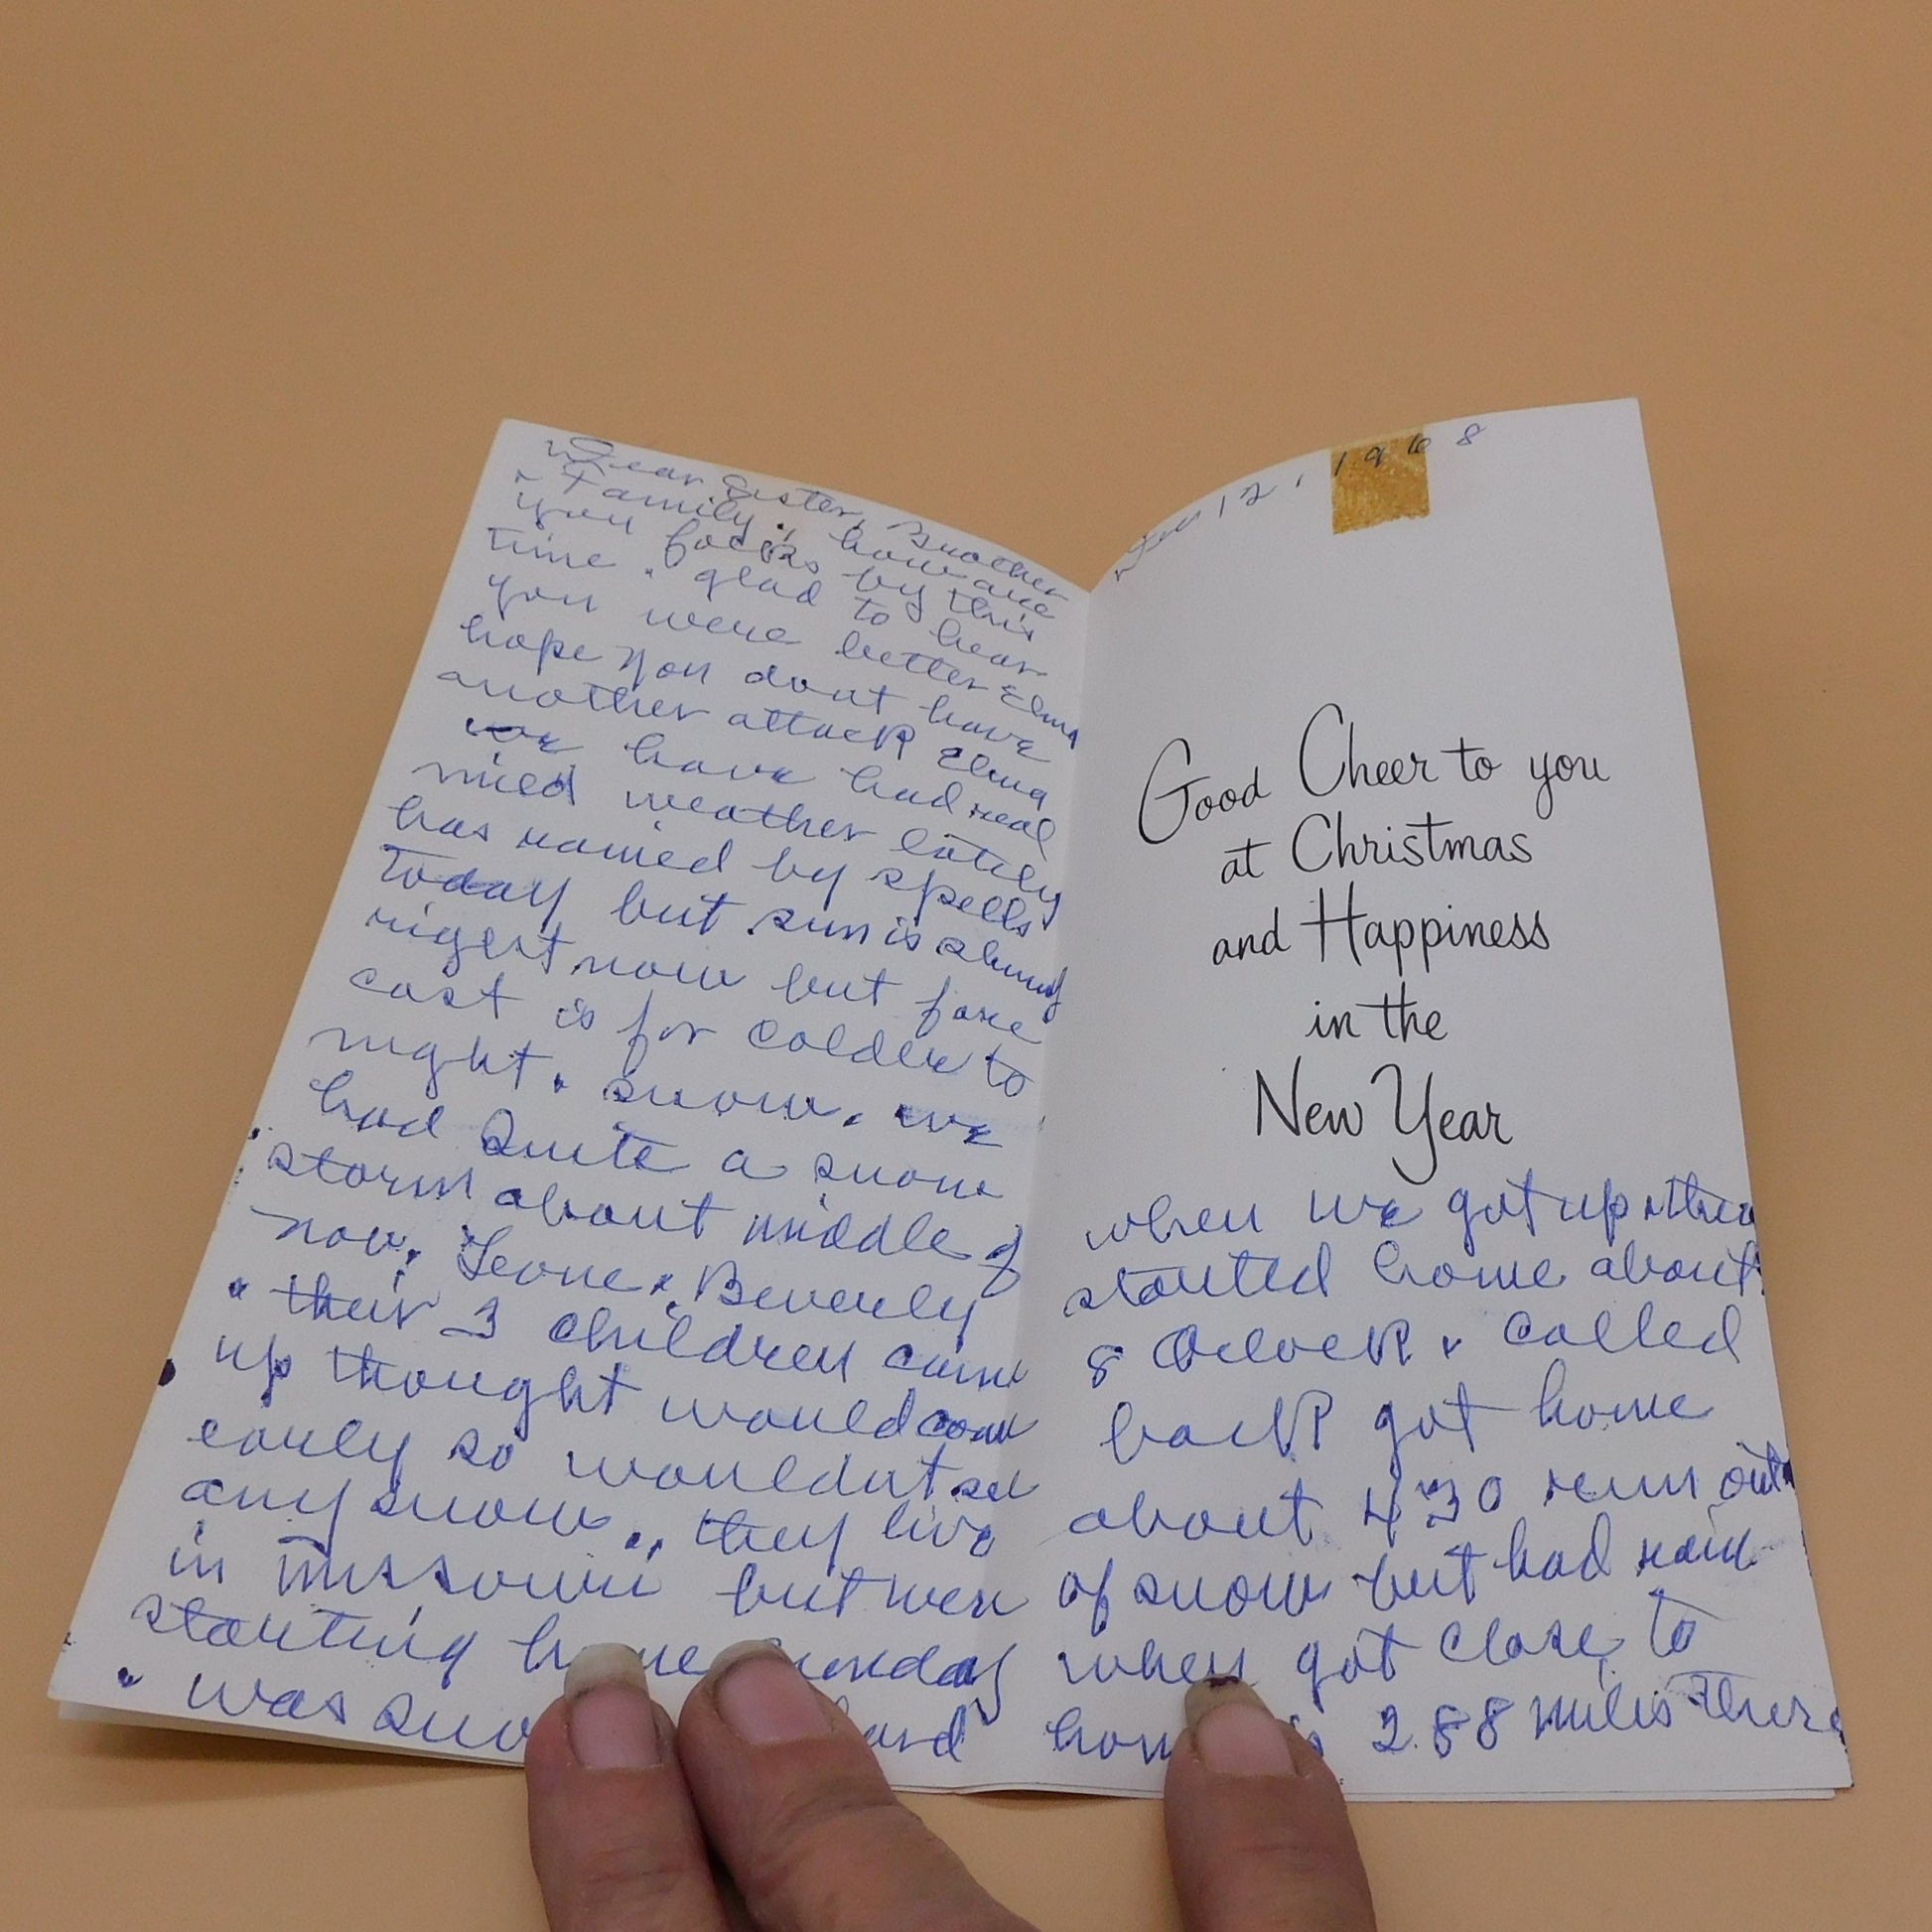 Dear Sister, Brother
& Family, how are
you folks by this
time. glad to hear
you were better Elma
hope you dont have
another attack Elma
we have had real
mild weather lately
has rained by spells
today but sun is shining
right now but fore
cast is for colder to
night & snow. we
had quite a snow
storm about middle of
nov. Leone & Beverly
& their 3 children came
up thought would come
early so wouldnt see
any snow, they live
in Missouri but when
starting home Sunday
& was hard
Dec 12, 1968
Good Cheer to you
at Christmas
and Happiness
in the
New Year
when we got up & they
started home about
8 Oclock & called
back got home
about 4 30 run out
of snow but had rain
when got close to
288 miles there